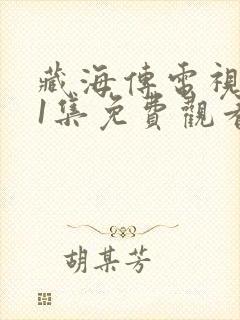 藏海傳電視
1集免費觀看
胡某芳